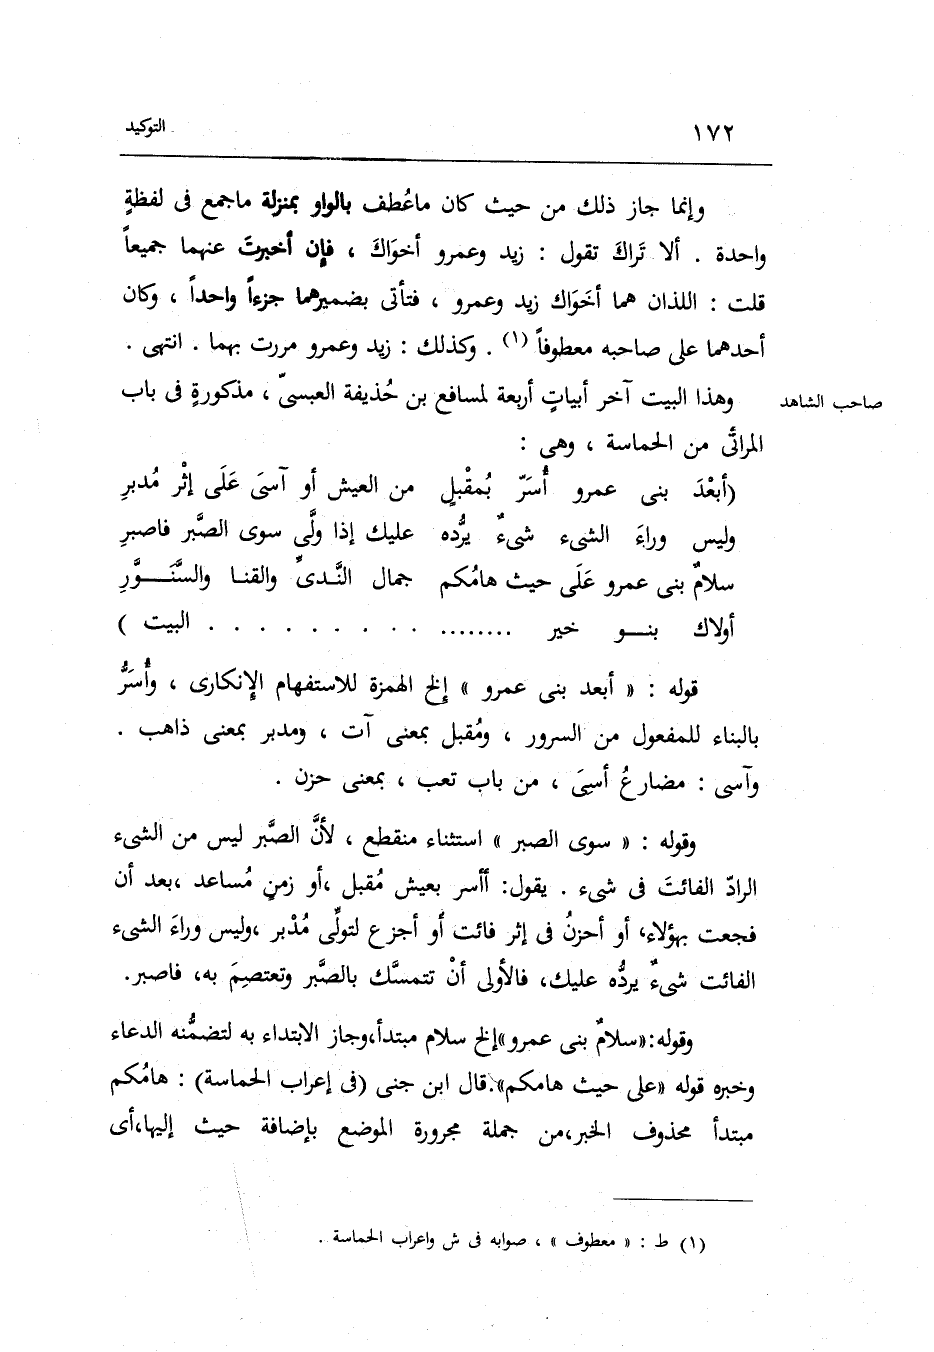 ١٧٢ التوكيد
وإنما جاز ذلك من حيث كان ماعُطف بالواو بمنزلة ماجمع فى لفظةٍ
واحدة . ألا تَراكَ تقول : زيد وعمرو أخوَاكَ ، فإن أخبرتَ عنهما جميعاً
قلت : اللذان هما أخَوَاك زيد وعمرو ، فتأتى بضميرهما جزءاً واحداً ، وكان
أحدهما على صاحبه معطوفاً (١) . وكذلك : زيد وعمرو مررت بهما . انتهى .
صاحب الشاهد وهذا البيت آخر أبياتٍ أربعة لمسافع بن حُذيفة العبسىّ ، مذكورةٍ فى باب
المراثى من الحماسة ، وهى :
(أبعْدَ بنى عمرو أُسَرّ بُمقْبلٍ من العيش أو آسَى عَلَى إثْر مُدبرِ
وليس وراءَ الشىء شىءٌ يرُّده عليك إذا ولَّى سوى الصَّبر فاصبرِ
سلامٌ بنى عمرو عَلَى حيث هامُكم جمال النَّدىِّ والقنا والسَّنَوَّرِ
أولاك بنو خير ........ . . . . . . . . . البيت )
قوله : « أبعد بنى عمرو » إلخ الهمزة للاستفهام الإنكارى ، وأُسَرُّ
بالبناء للمفعول من السرور ، ومُقبل بمعنى آت ، ومدبر بمعنى ذاهب .
وآسى : مضارعُ أسىَ ، من باب تعب ، بمعنى حزن .
وقوله : « سوى الصبر » استثناء منقطع ، لأنَّ الصَّبر ليس من الشىء
الرادّ الفائتَ فى شىء . يقول: أأسر بعيش مُقبل ،أو زمنٍ مُساعد ،بعد أن
فجعت بهؤلاء، أو أحزنُ فى إثر فائت أو أجزع لتولِّى مُدْبر ،وليس وراءَ الشىء
الفائت شىءٌ يردُّه عليك، فالأولى أنْ تتمسَّك بالصَّبر وتعتصِمَ به، فاصبر.
وقوله:«سلامٌ بنى عمرو»إلخ سلام مبتدأ،وجاز الابتداء به لتضمُّنه الدعاء
وخبره قوله «على حيث هامكم».قال ابن جنى (فى إعراب الحماسة) : هامُكم
مبتدأ محذوف الخبر،من جملة مجرورة الموضع بإضافة حيث إليها،أى
(١) ط : « معطوف » ، صوابه فى ش واعراب الحماسة .